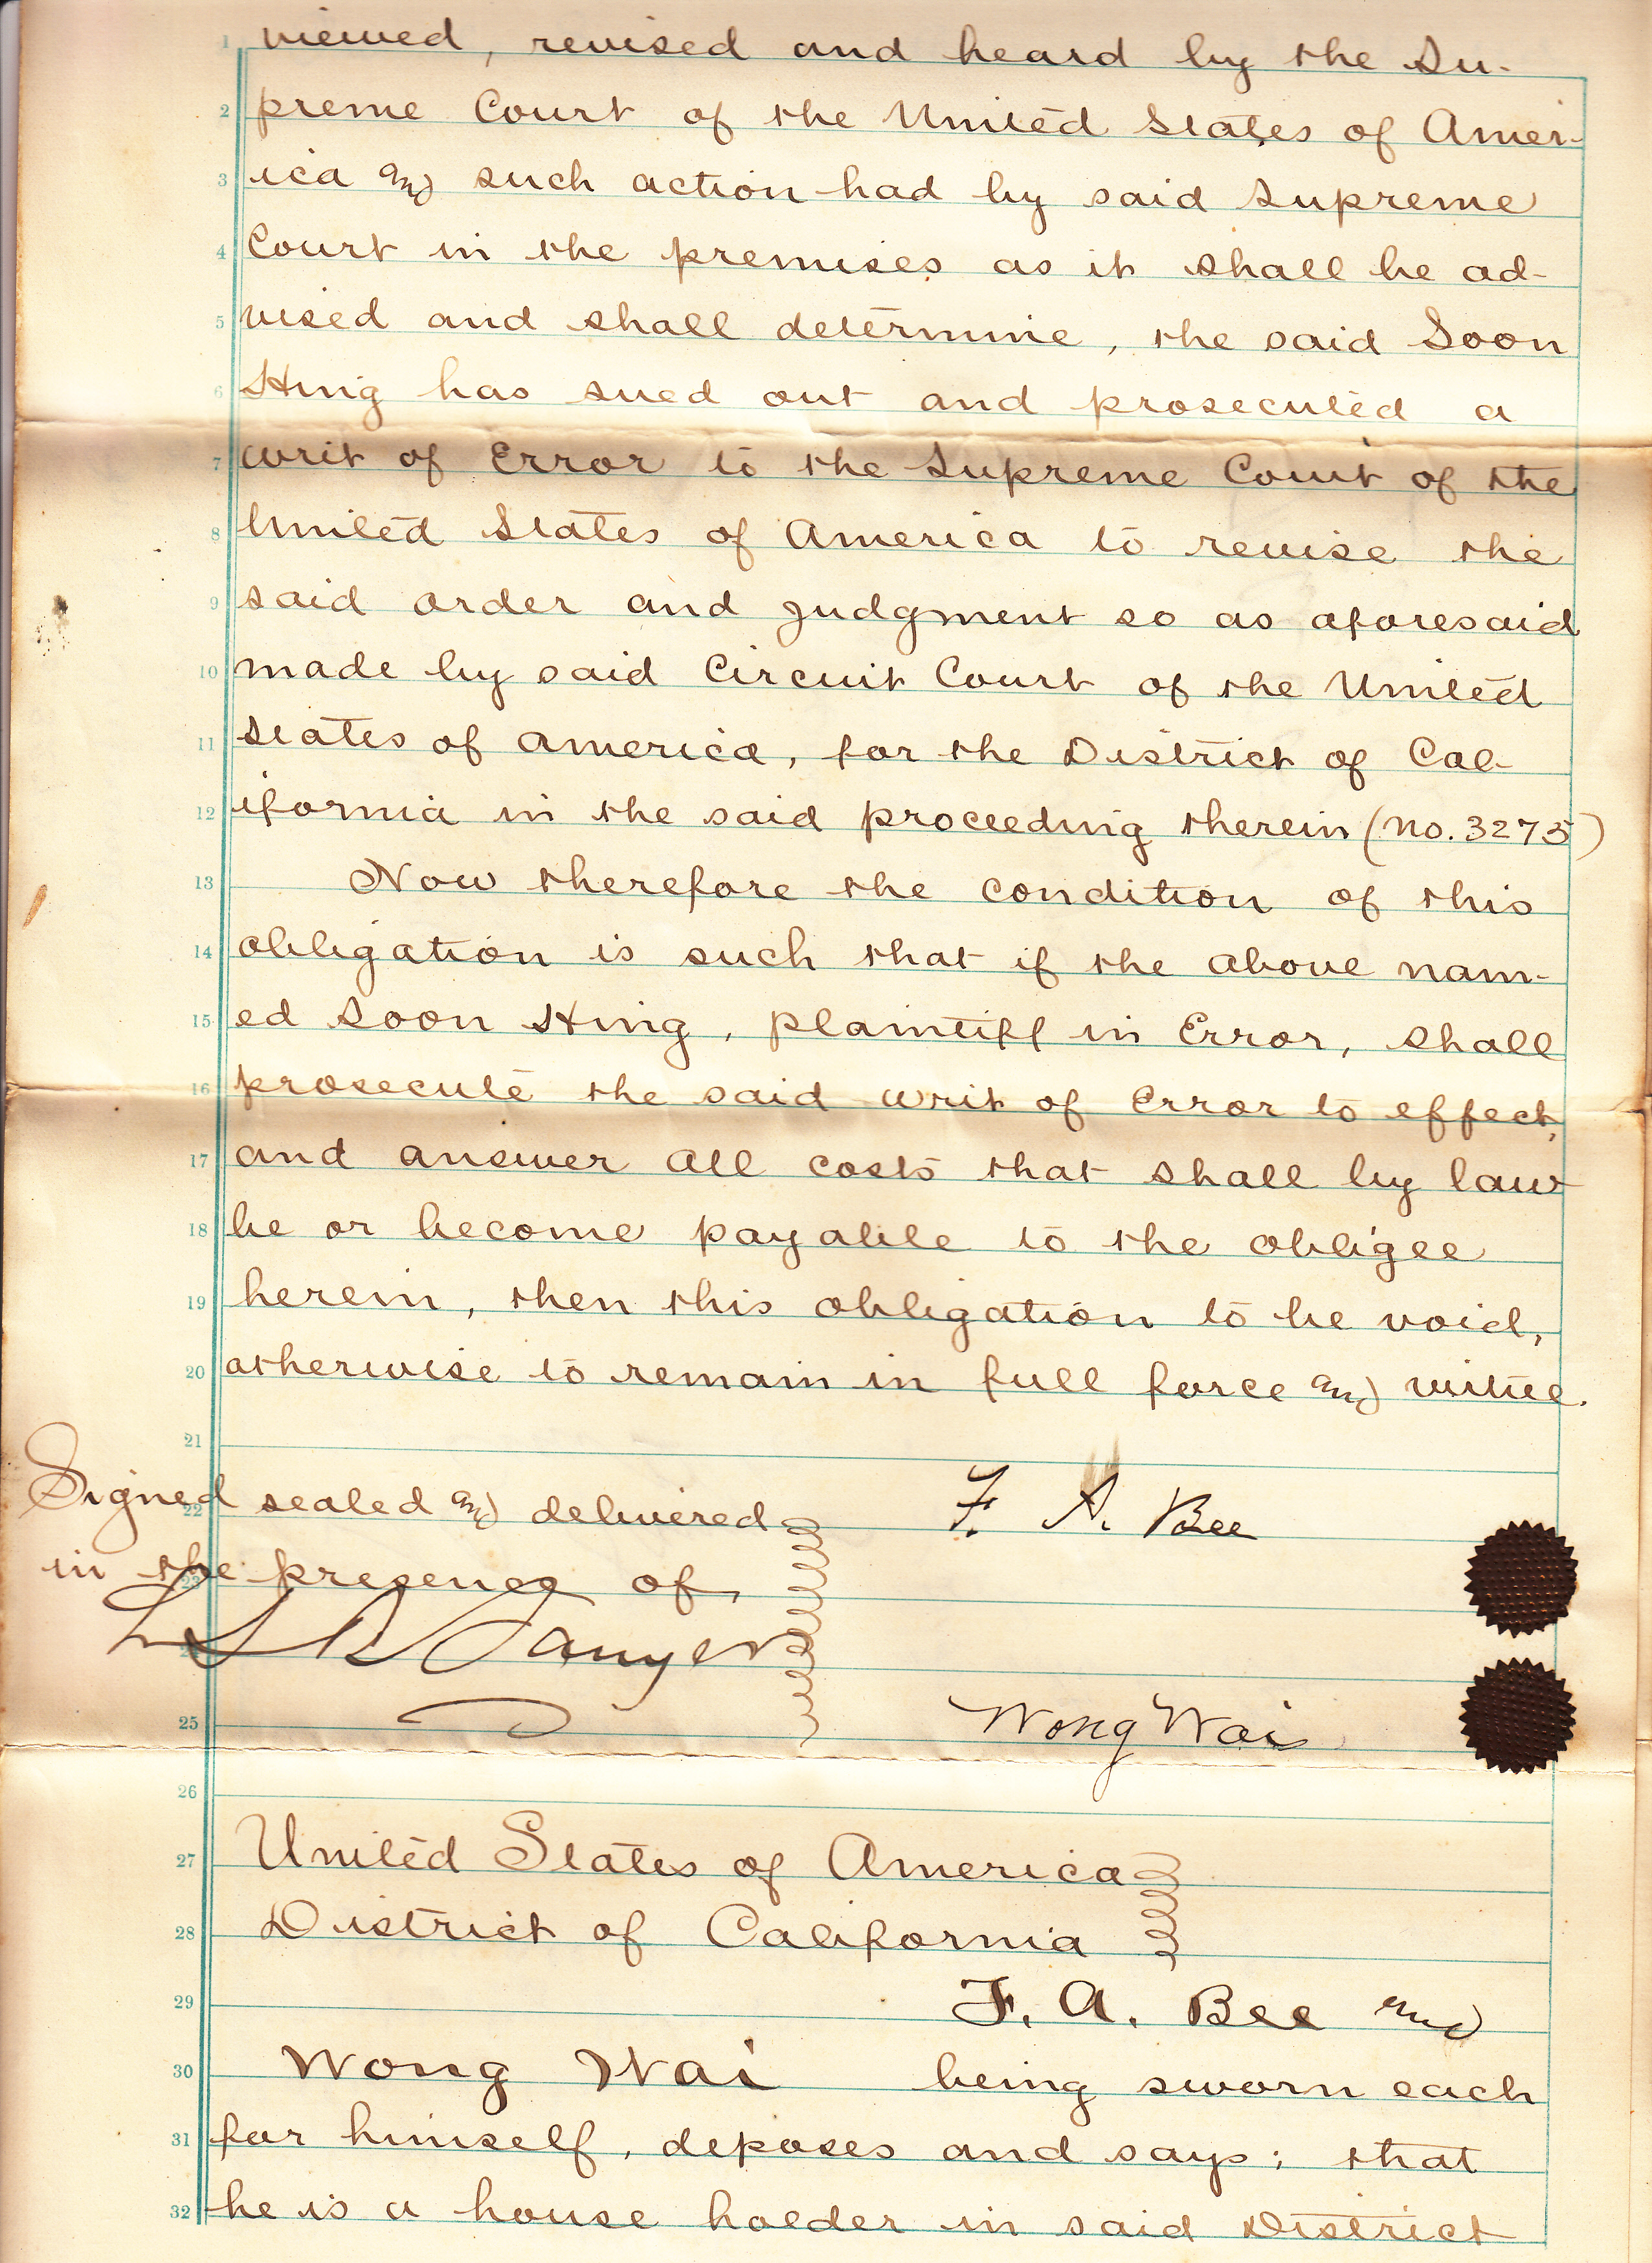 1 viewed, revised and heard by the Su-
2 preme Court of the United States of Amer-
3 ica and such action had by said Supreme
4 Court in the premises as it shall be ad-
5 vised and shall determine, the said Soon
6 Hing has sued out and prosecuted a
7 writ of Error to the Supreme Court of the
8 United States of America to revise the
9 said order and judgment so as aforesaid
10 made by said Circuit Court of the United
11 States of America, for the District of Cal-
12 ifornia in the said proceeding therein (No. 3275)
13 Now therefore the condition of this
14 obligation is such that if the above nam-
15 ed Soon Hing, plaintiff in Error, shall
16 prosecute the said writ of Error to effect,
17 and answer all costs that shall by law
18 be or become payable to the obligee
19 herein, then this obligation to be void,
20 otherwise to remain in full force and virtue.
21
22 Signed sealed and delivered F. A. Bee
23 in the presence of,
L S B Sawyer
25 Wong Wai
26
27 United States of America
28 District of California
29 F. A. Bee and
30 Wong Wai being sworn each
31 for himself, deposes and says; that
32 he is a house holder in said District